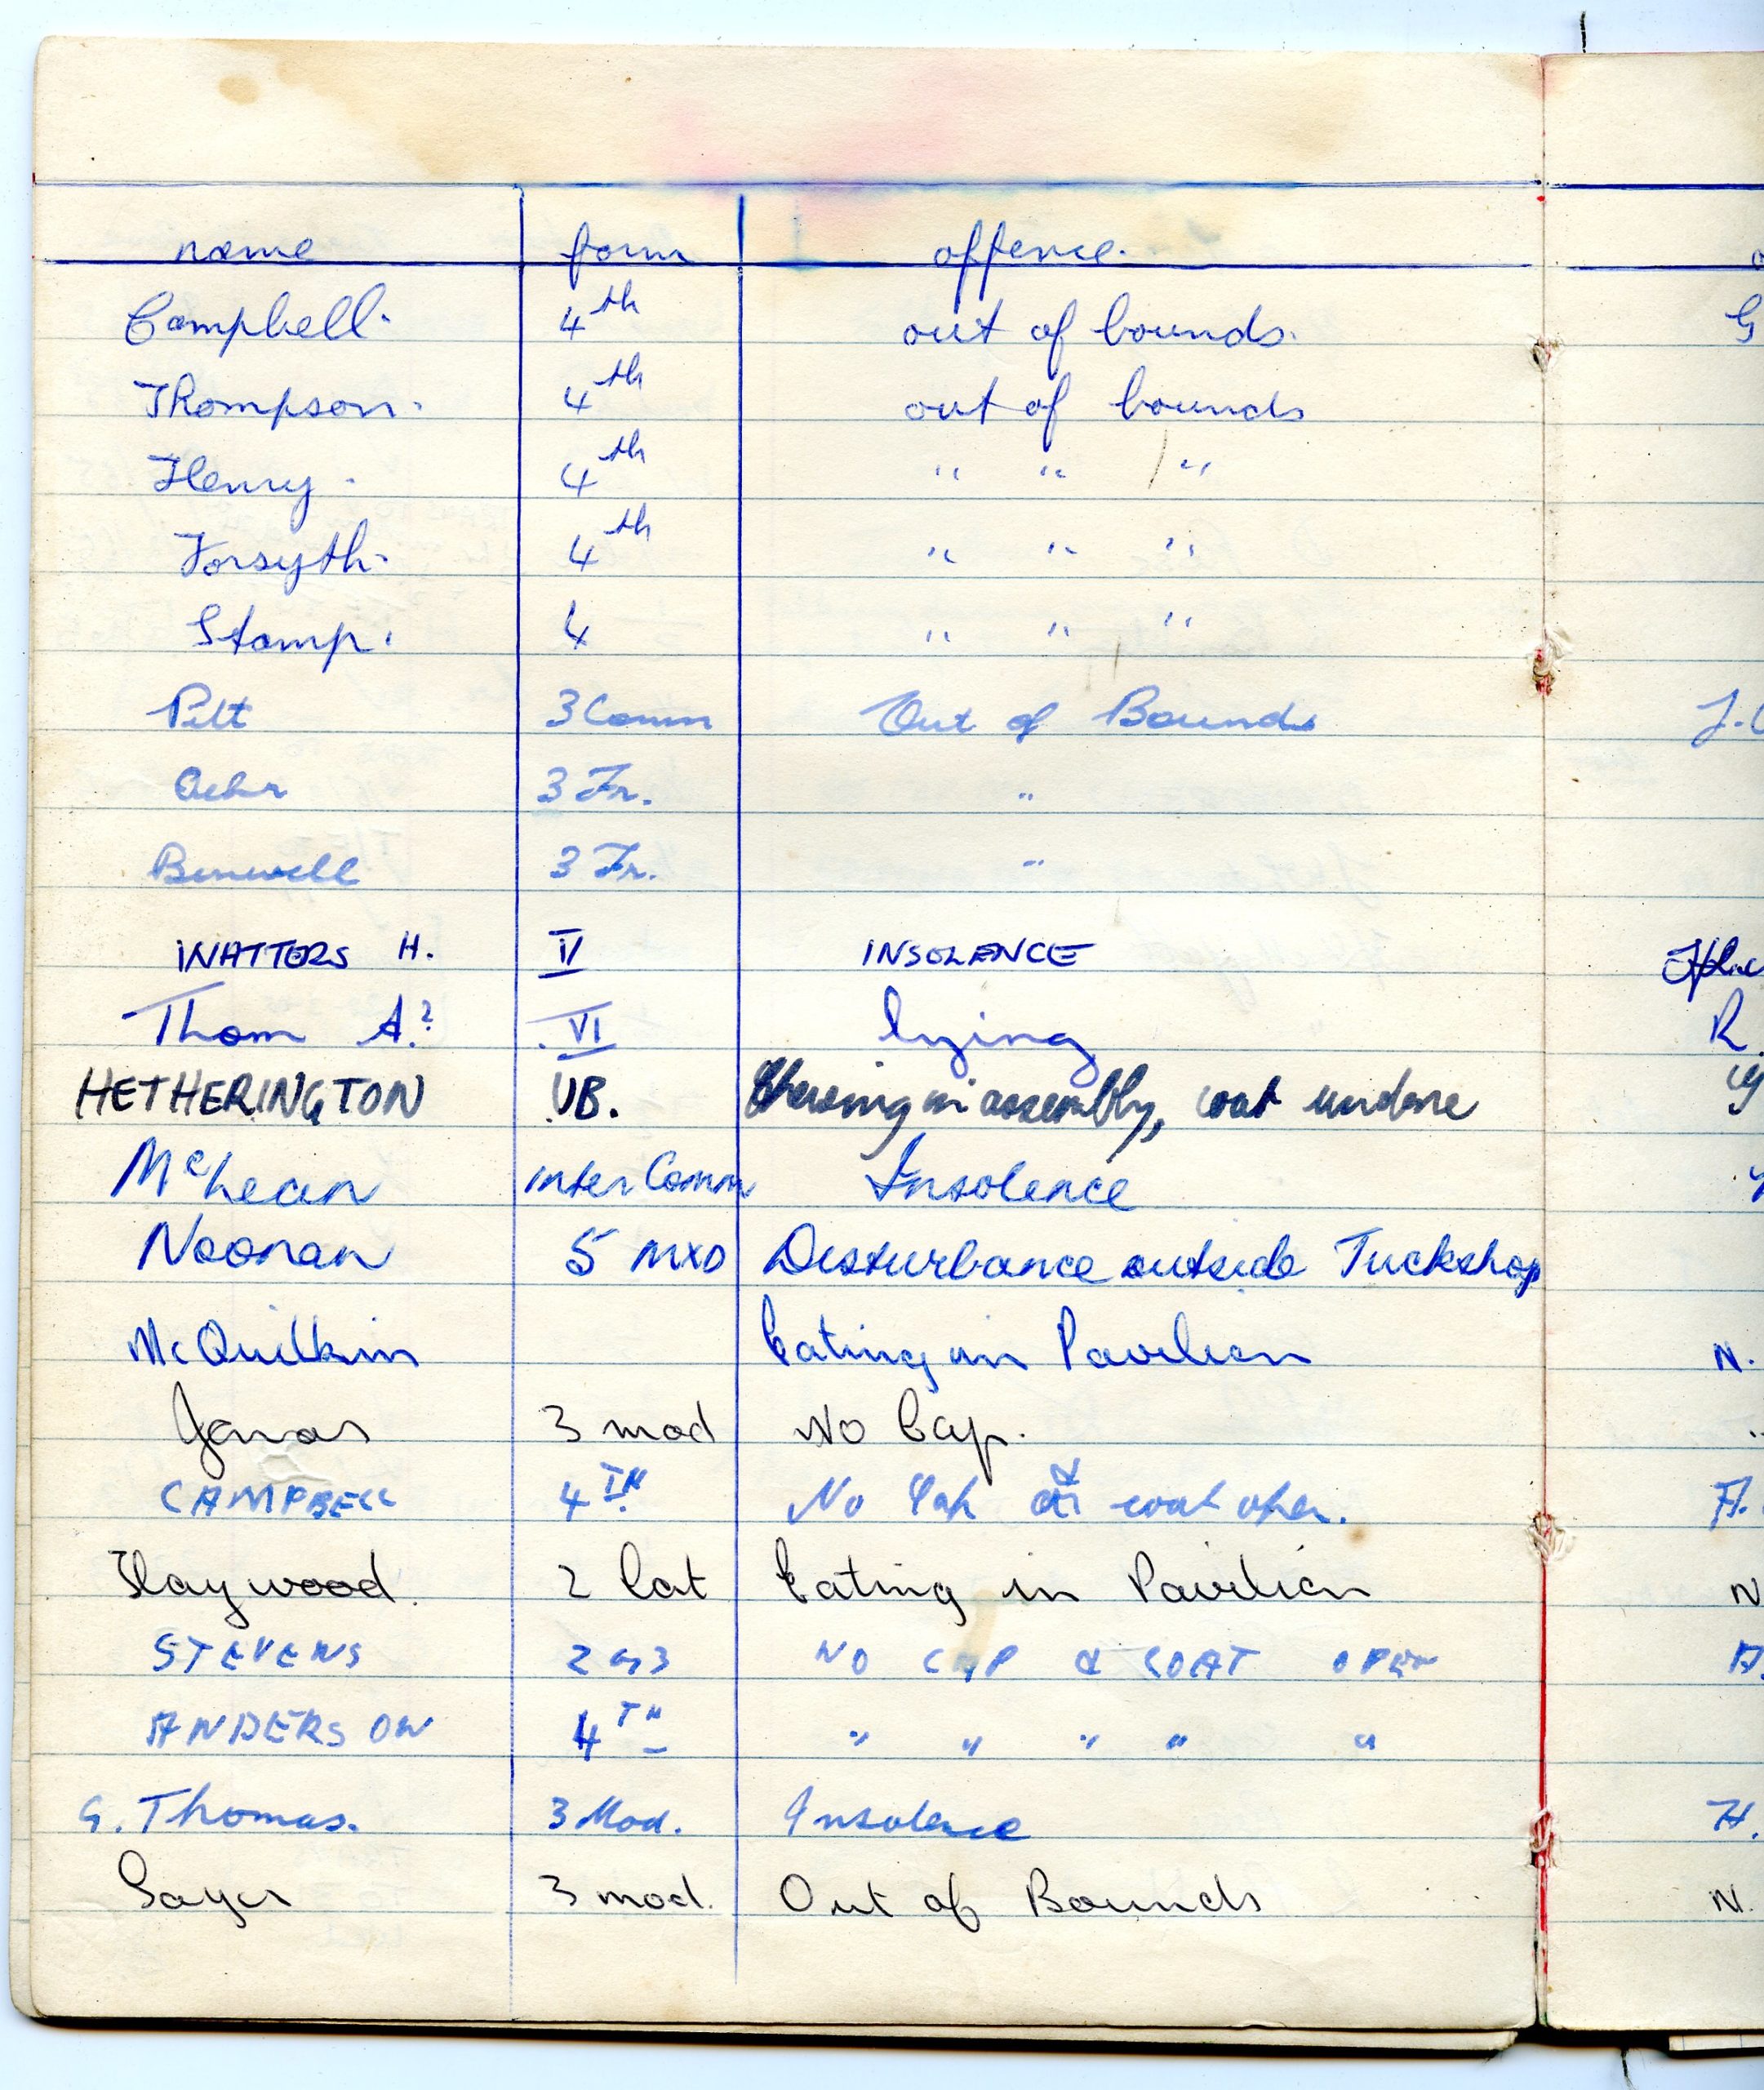 name form offence.
Campbell. 4th out of bounds. G
Thompson. 4th out of bounds
Henry. 4th " " "
Forsyth. 4th " " "
Stamp. 4 " " "
Pitt 3 Comm Out of Bounds J.
3 Fr. "
Benwell 3 Fr. "
WATTERS H. IV INSOLENCE
Thom A? VI lying R.
HETHERINGTON VB. Chewing in assembly, coat undone
McLean inter Comm Insolence
Noonan 5 MXD Disturbance outside Tuckshop
McQuilkin Eating in Pavilion N.
Jonas 3 mod No Cap. "
CAMPBELL 4TH No Cap & coat open. A.
Haywood. 2 Lat Eating in Pavilion N
STEVENS 2 G3 NO CAP & COAT OPEN A.
ANDERSON 4TH " " " " "
G. Thomas. 3 Mod. Insolence H.
Sayer 3 mod. Out of Bounds N.